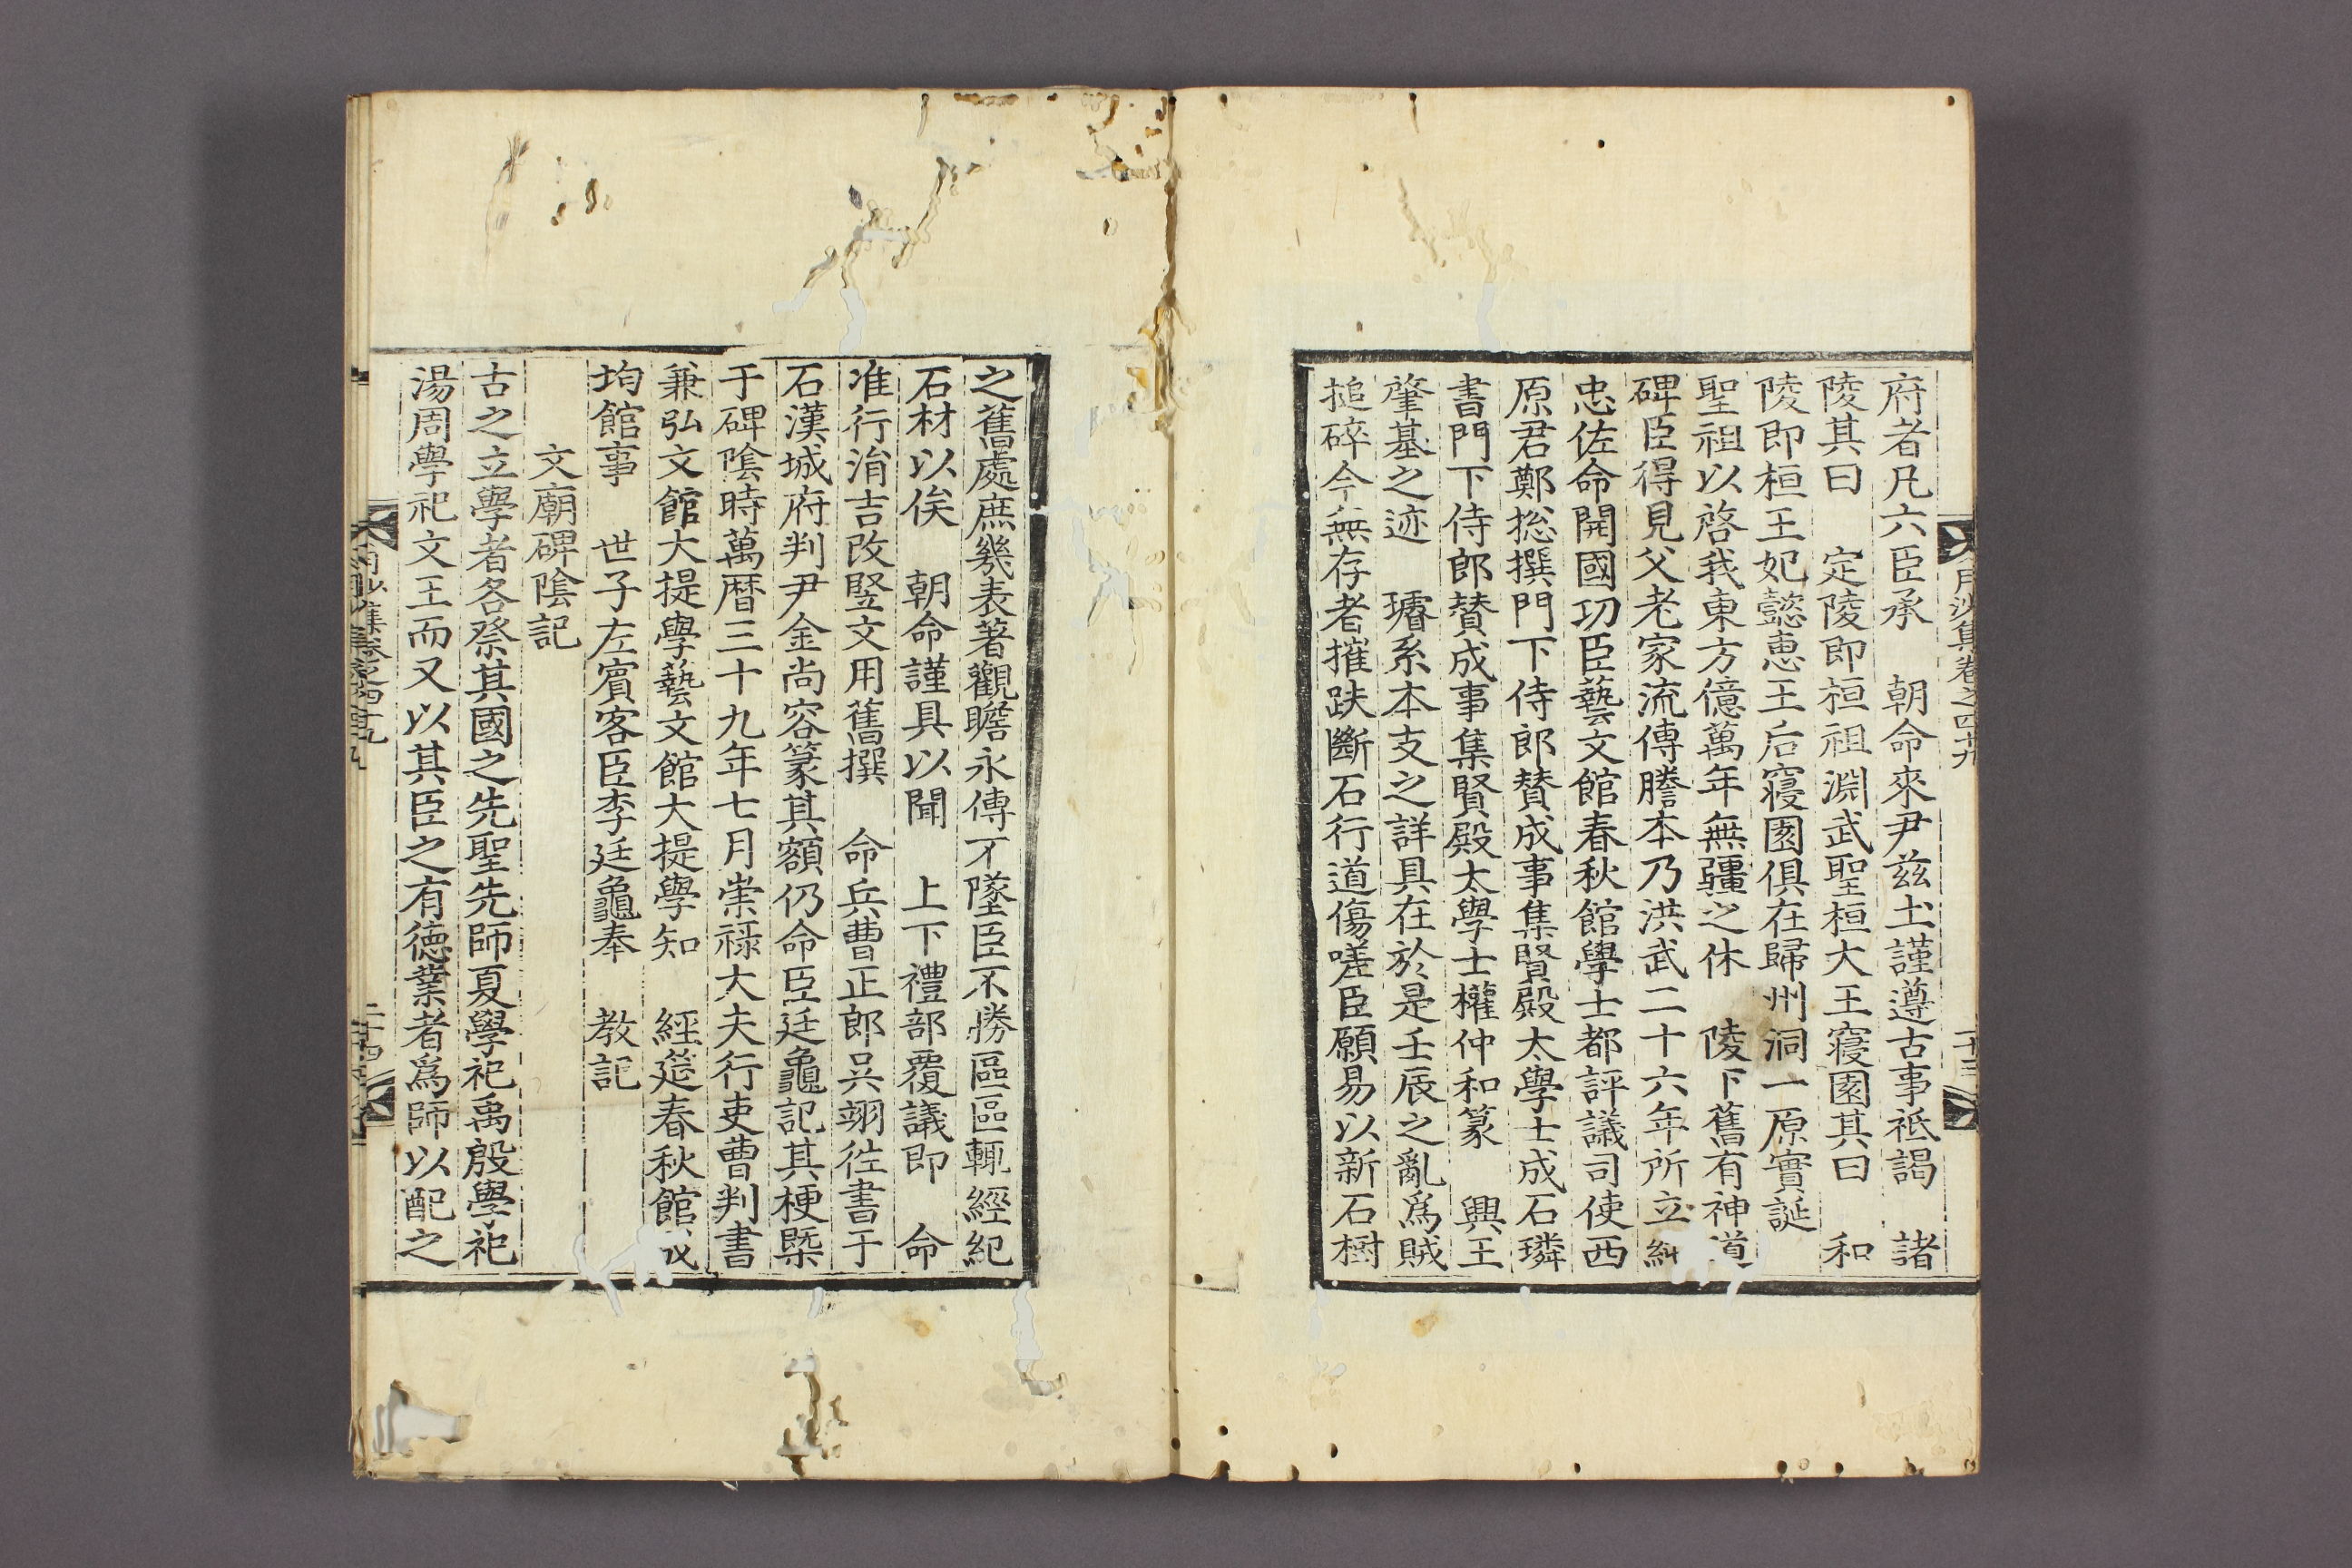 月沙集卷之四十九
二十三
府者凡六臣承 朝命來尹茲土謹遵古事祗謁 諸
陵其曰 定陵即桓祖淵武聖桓大王寢園其曰 和
陵即桓王妃懿惠王后寢園俱在歸州洞一原實誕
聖祖以啓我東方億萬年無疆之休 陵下舊有神道
碑臣得見父老家流傳謄本乃洪武二十六年所立純
忠佐命開國功臣藝文館春秋館學士都評議司使西
原君鄭摠撰門下侍郎賛成事集賢殿太學士成石璘
書門下侍郎賛成事集賢殿太學士權仲和篆 興王
肇基之迹 璿系本支之詳具在於是壬辰之亂爲賊
搥碎今無存者摧趺斷石行道傷嗟臣願易以新石樹
之舊處庶幾表著觀瞻永傳不墜臣不勝區區輒經紀
石材以俟 朝命謹具以聞 上下禮部覆議即 命
准行涓吉改竪文用舊撰 命兵曹正郎吳翊徃書于
石漢城府判尹金尚容篆其額仍命臣廷龜記其梗槩
于碑陰時萬曆三十九年七月崇祿大夫行吏曹判書
兼弘文館大提學藝文館大提學知 經筵春秋館成
均館事 世子左賓客臣李廷龜奉 教記
文廟碑陰記
古之立學者各祭其國之先聖先師夏學祀禹殷學祀
湯周學祀文王而又以其臣之有德業者爲師以配之